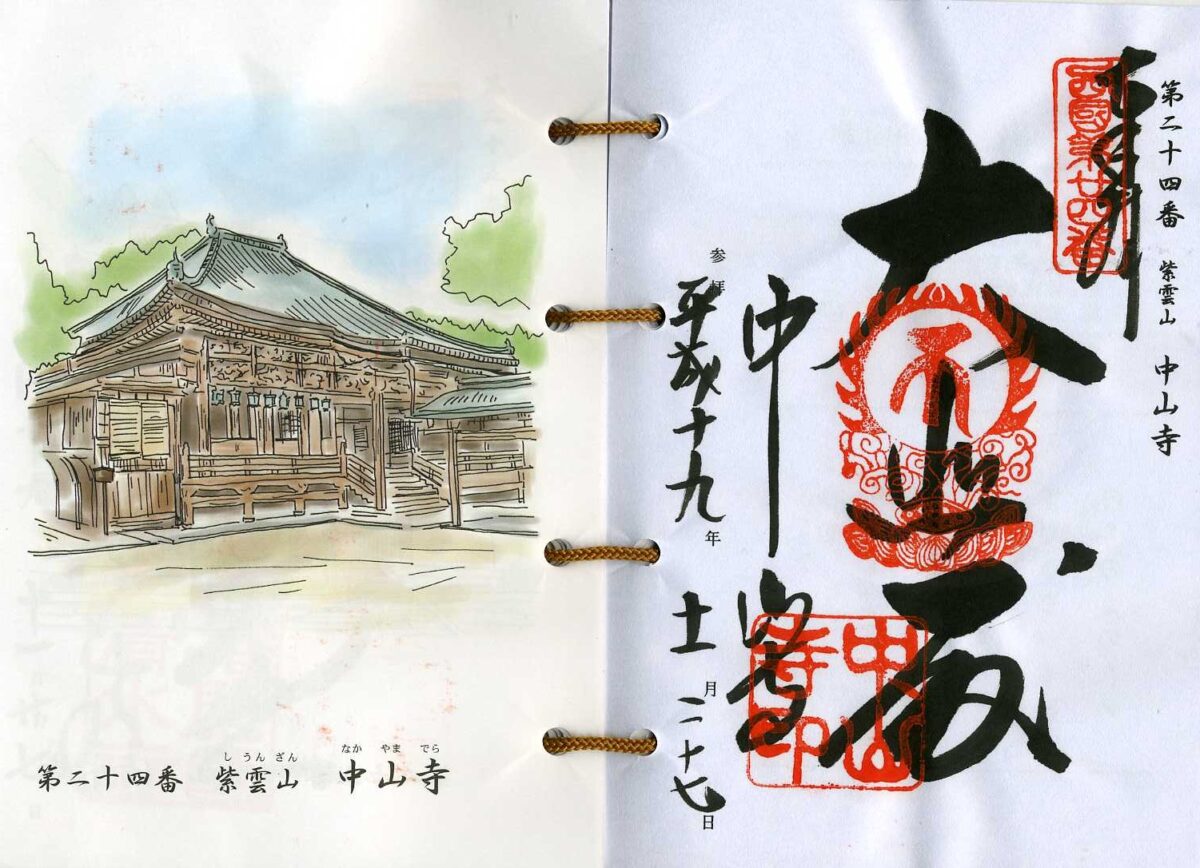 しうんざん なかやまでら
第二十四番 紫雲山 中山寺
第二十四番 紫雲山 中山寺
奉拝
西國第廿四番
大悲殿
中山寺
中山寺印
参拝
平成十九年 十一月 二十七日